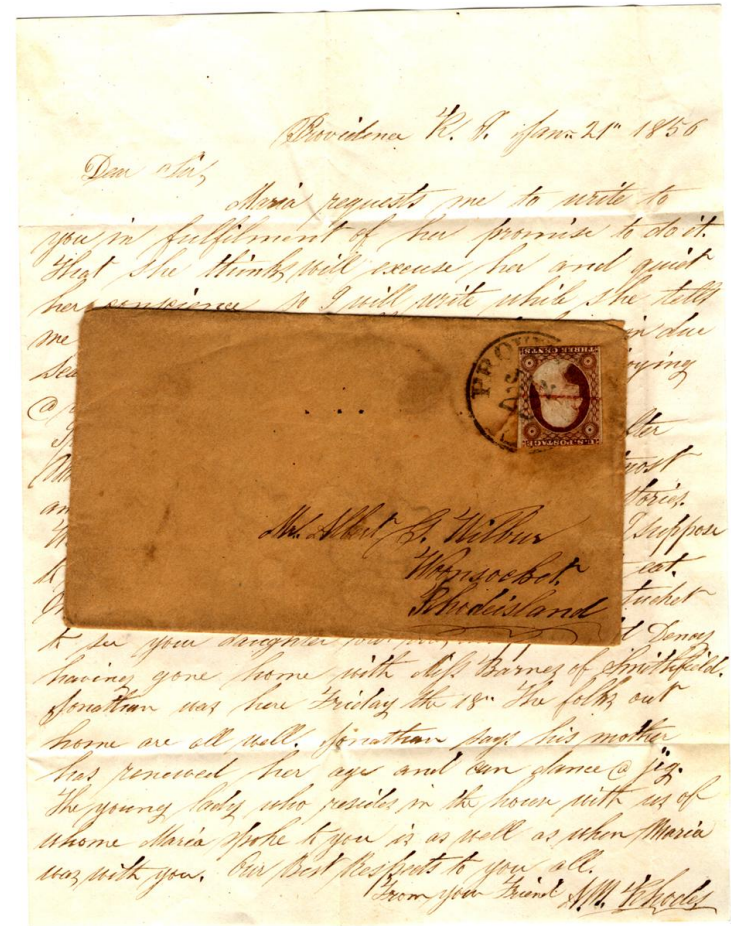 Providence R. I. Jan= 21" 1856
Dear Sir,
Maria requests me to write to
you in fulfilment of her promise to do it.
That she thinks will excuse her and quiet
her conscience so I will write while she tells
me in due
Sea
@
lter
most
an stories.
I suppose
eat.
tucket
to see your daughter Denny
having gone home with Miss Barnes of Smithfield.
Jonathan was here Friday the 18" The folks out
home are all well. Jonathan says his mother
has renewed her age and can dance @ jig.
The young lady who resides in the house with us of
whome Maria spoke to you is as well as when Maria
was with you. Our Best Respects to you all.
From your Friend Rhodes
PROV
THREE CENTS
U.S. POSTAGE
Mr. Albert G. Wilbur
Woonsocket.
Rhodeisland